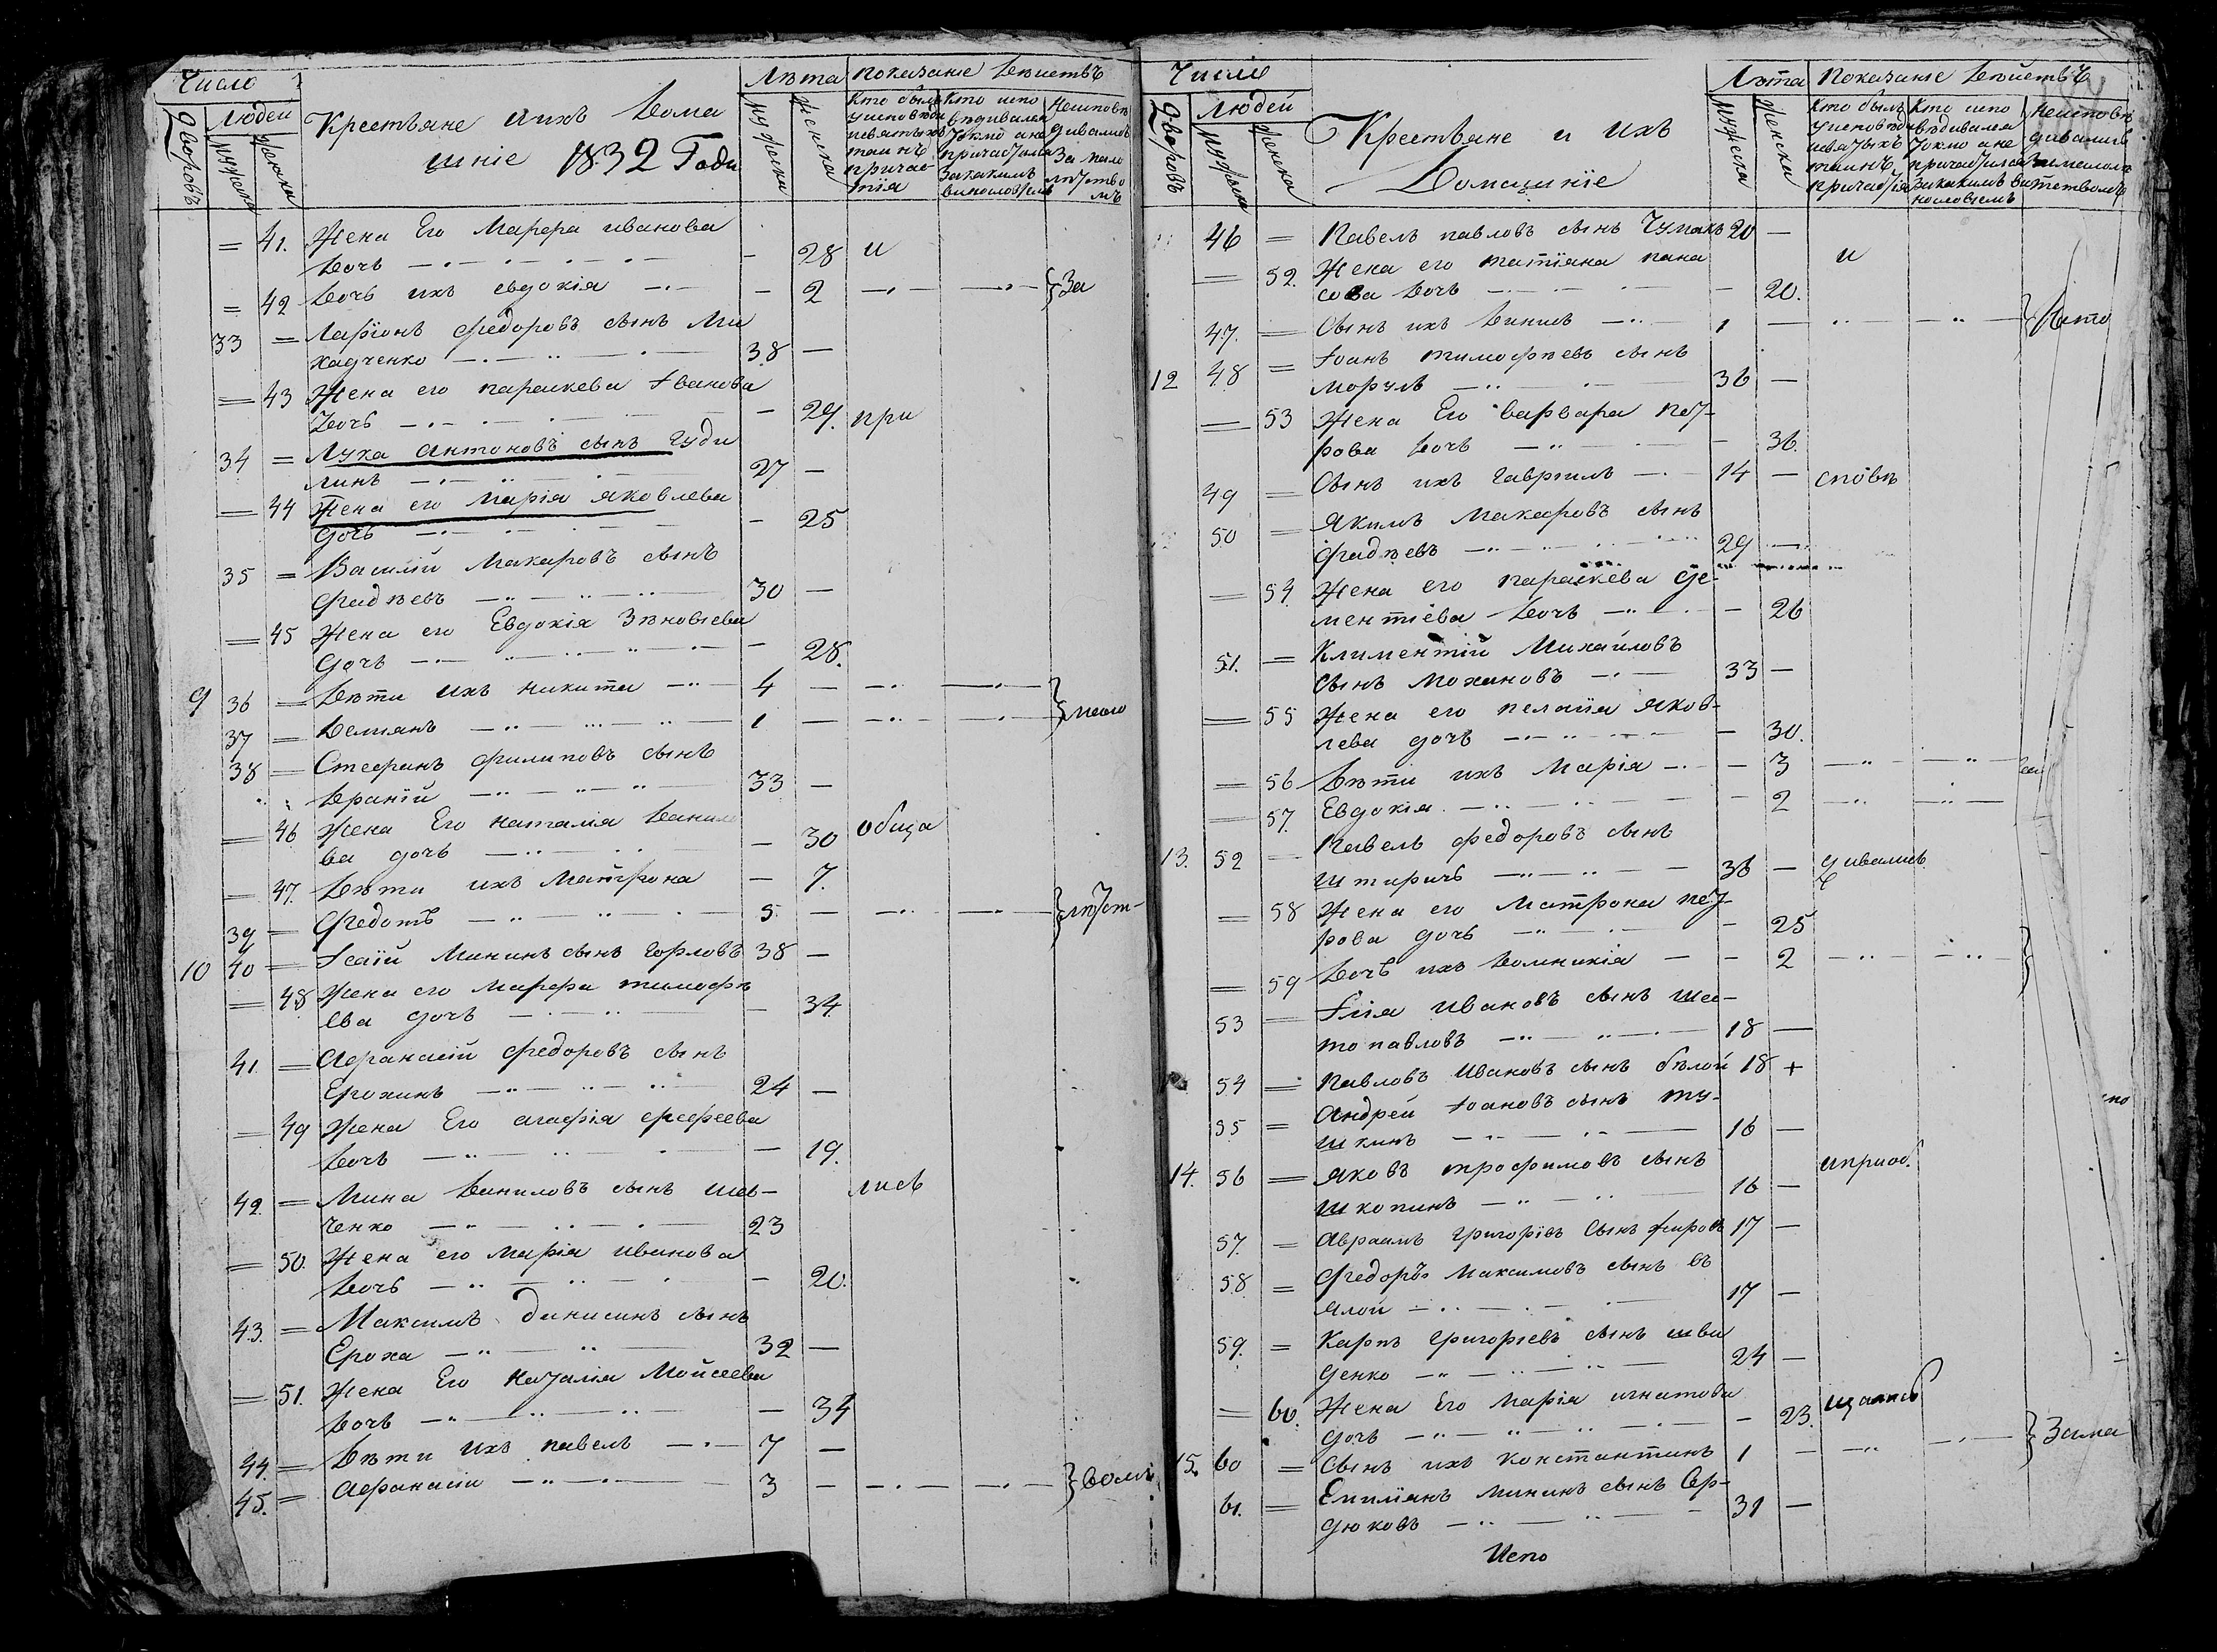 Число
Дворовъ
Людей
Мужеска
Женска
Крестьяне и ихъ Дома
шніе 1832 Года
Лѣта
Мужеска
Женска
Показаніе Действъ
Кто былъ
у исповѣди
и святыхъ
таинъ
причас-
тія
Кто испо
вѣдивался
токмо а не
причастился
за какимъ
винословіемъ
Неисповѣ
дивались
За мало
лѣтство
мъ
= 41. Жена Его Марфа иванова
дочь - 28 и
= 42 Дочь ихъ евдокія - 2 За
33 = Ларіонъ федоровъ сынъ Ми
хадченко 38 —
= 43 Жена его параскева Иванова
дочь - 29. при
34 = Лука антоновъ сынъ Гуди
линъ 27 —
= 44 Жена его Марія яковлева
дочь - 25
35 = Василій Макаровъ сынъ
Фадѣевъ 30 —
= 45 Жена его Евдокія Зѣновіева
дочь - 28.
9 36 = Дѣти ихъ никита 4 —
37 = Демианъ 1 — мало
38 = Стефанъ филиповъ сынъ
Враній 33 —
= 46 Жена Его наталія Данило
ва дочь - 30 обща
= 47. Дѣти ихъ Матрона - 7.
39 = Федотъ 5. — лѣтст-
10 40 = Ісаій Мининъ сынъ Горловъ 38 —
= 48 Жена его Марфа тимофѣ
ева дочь - 34
41. = Афанасій федоровъ сынъ
Ерохинъ 24 —
= 49 Жена Его агафія
дочь - 19.
42. = Мина Даниловъ сынъ Шев-
ченко 23 лись
= 50. Жена его Марія иванова
дочь - 20.
43. = Максимъ динисинъ сынъ
Ероха 32 —
= 51. Жена Его Наталія Мойсеева
дочь - 34
44. = Дѣти ихъ павелъ 7 —
45. = Афанасій 3 — вомъ
Число
Дворовъ
Людей
Мужеска
Женска
Крестьяне и ихъ
Домашніе
Лѣта
Мужеска
Женска
Показаніе Действъ
Кто былъ
у исповѣди
и святыхъ
таинъ
причастія
Кто испо
вѣдивался
токмо а не
причастился
за какимъ ви
нословіемъ
Неисповѣ
дивались
За малолѣ
тетвомъ
46 = Павелъ павловъ сынъ Чумакъ 20 —
= 52. Жена его татіяна пана
сова дочь - 20. и
47. = Сынъ ихъ Данилъ 1 —
12 48 = Іоанъ тимофѣевъ сынъ
Моруль 36 —
= 53 Жена Его варвара пет-
рова дочь - 36.
49 = Сынъ ихъ гавріилъ 14 — сповѣ
50 = Якимъ Макаровъ сынъ
Фадѣевъ 29 —
= 54 Жена его параскева Де-
ментіева дочь - 26
51. = Климентій Михайловъ
сынъ Мохановъ 33 —
= 55 Жена его пелагія яков-
лева дочь - 30.
= 56 Дѣти ихъ Марія - 3
= 57. Евдокія - 2
13. 52 = Павелъ федоровъ сынъ
Штиричъ 36 — дивалися
= 58 Жена его Матрона пет-
рова дочь - 25
= 59 Дочь ихъ Домникія - 2
53 = Ілія ивановъ сынъ Шес-
то павловъ 18 —
54 = Павловъ Ивановъ сынъ бѣлой 18 +
55 = Андрей Іоановъ сынъ ту-
шкинъ 16 —
14. 56 = Яковъ трофимовъ сынъ
Шкопинъ 16 — и приоб.
57. = Авраамъ григоріевъ Сынъ жировъ 17 —
58 = Федоръ Максимовъ сынъ бѣ
ялой 17 —
59. = Карпъ григоріевъ сынъ шви
денко 24 —
= 60. Жена Его Марія игнатова
дочь - 23. щались
15. 60 = Сынъ ихъ константинъ 1 — Зама
61. = Емиліянъ мининъ сынъ Сер-
дюковъ 31 —
Испо